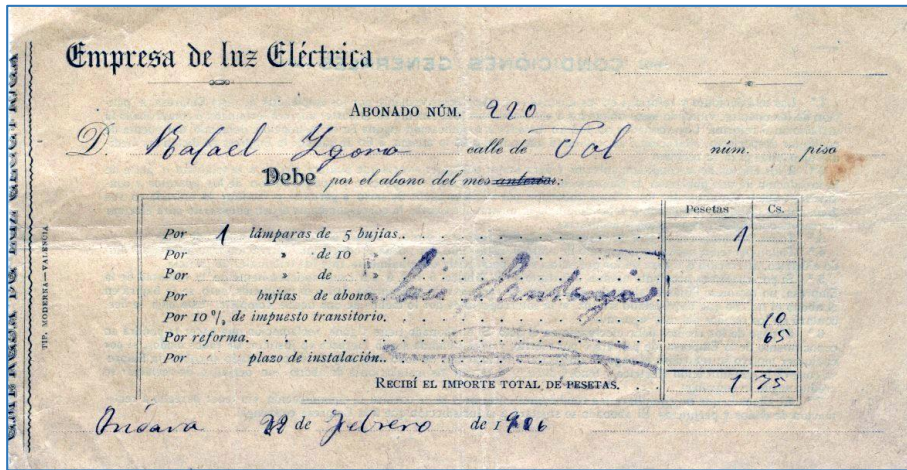 Empresa de luz Eléctrica
ABONADO NÚM. 220
D. Rafael calle de Sol núm. piso
Debe por el abono del mes anterior:
Pesetas Cs.
Por 1 lámparas de 5 bujías. 1
Por » de 10
Por » de
Por bujías de abono
Por 10 %, de impuesto transitorio. 10
Por reforma. 65
Por plazo de instalación..
RECIBÍ EL IMPORTE TOTAL DE PESETAS. 1 75
22 de Febrero de 1906
TIP. MODERNA—VALENCIA